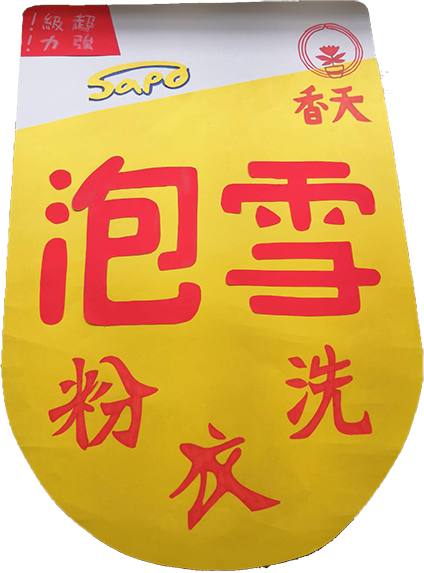 超級!
強力!
Sapo
天香
雪泡
洗衣粉